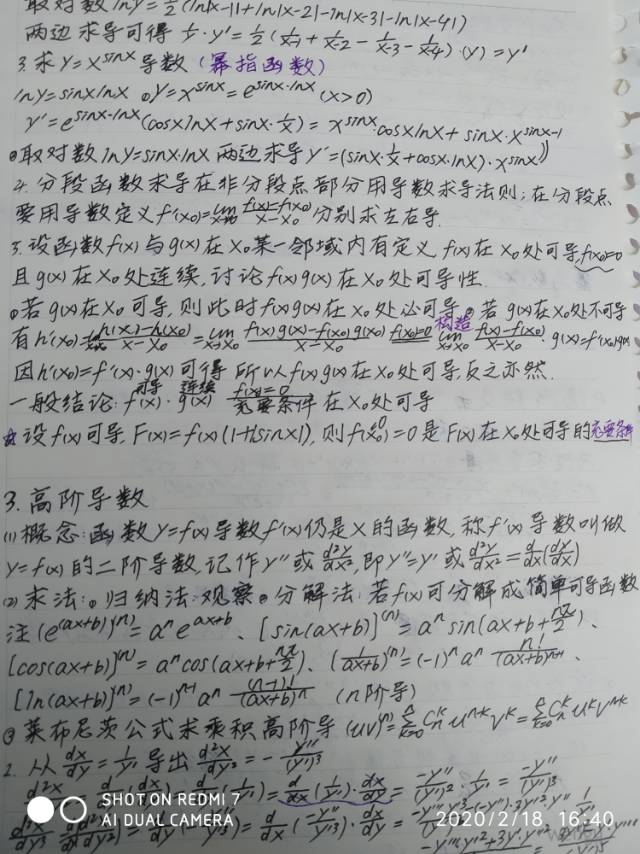 取对数 lny=½(ln|x-1|+ln|x-2|-ln|x-3|-ln|x-4|)
两边求导可得 1/y·y'=½(1/(x-1)+1/(x-2)-1/(x-3)-1/(x-4))·(y)=y'
3.求y=x^sinx 导数(幂指函数)
lny=sinxlnx ①y=x^sinx=e^(sinx·lnx)(x>0)
y'=e^(sinx·lnx)(cosxlnx+sinx·1/x)=x^sinx·cosxlnx+sinx·x^(sinx-1)
②取对数lny=sinx·lnx 两边求导y'=(sinx·1/x+cosx·lnx)·x^sinx
4.分段函数求导在非分段点部分用导数求导法则;在分段点
要用导数定义f'(x₀)=lim(x→x₀) (f(x)-f(x₀))/(x-x₀) 分别求左右导.
5.设函数f(x)与g(x)在x₀某一邻域内有定义,f(x)在x₀处可导,f(x₀)=0
且g(x)在x₀处连续,讨论f(x)g(x)在x₀处可导性.
①若g(x)在x₀可导,则此时f(x)g(x)在x₀处必可导②若g(x)在x₀处不可导
构造
有h'(x₀)=lim(x→x₀) (h(x)-h(x₀))/(x-x₀)=lim(x→x₀) (f(x)g(x)-f(x₀)g(x₀))/(x-x₀) f(x₀)=0 lim(x→x₀) (f(x)-f(x₀))/(x-x₀)·g(x)=f'(x₀)g(x₀)
因h'(x₀)=f'(x)·g(x)可得 所以f(x)g(x)在x₀处可导,反之亦然.
可导 连续 f(x)=0
一般结论:f(x)·g(x) 充要条件 在x₀处可导
☆设f(x)可导,F(x)=f(x)(1+|sinx|),则f(0)=0是F(x)在x₀处可导的充要条件
3.高阶导数
(1)概念:函数y=f(x)导数f'(x)仍是x的函数,称f'(x)导数叫做
y=f(x)的二阶导数,记作y''或d²y/dx²,即y''=y'或d²y/dx²=d/dx(dy/dx)
(2)求法:①归纳法:观察②分解法:若f(x)可分解成简单可导函数
注(e^(ax+b))^(n)=aⁿe^(ax+b)、[sin(ax+b)]^(n)=aⁿsin(ax+b+nπ/2)、
[cos(ax+b)]^(n)=aⁿcos(ax+b+nπ/2)、(1/(ax+b))^(n)=(-1)ⁿaⁿ n!/(ax+b)^(n+1)、
[ln(ax+b)]^(n)=(-1)^(n-1)aⁿ (n-1)!/(ax+b)ⁿ (n阶导)
③莱布尼茨公式求乘积高阶导(uv)^(n)=Σ(k=0) Cₙᵏu^(n-k)vᵏ=Σ(k=0) Cₙᵏuᵏv^(n-k)
2.从dx/dy=1/y'导出d²x/dy²=-y''/(y')³
SHOT ON REDMI 7
AI DUAL CAMERA
2020/2/18 16:40